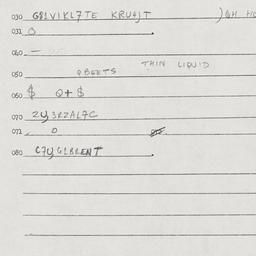 030 G81VIKL7TE KRU4JT )GH
031 O
040 —
050 QBEETS THIN LIQUID
060 $ Q+$
070 2Y3RZAL7C
071 O
080 C7YGLBRENT